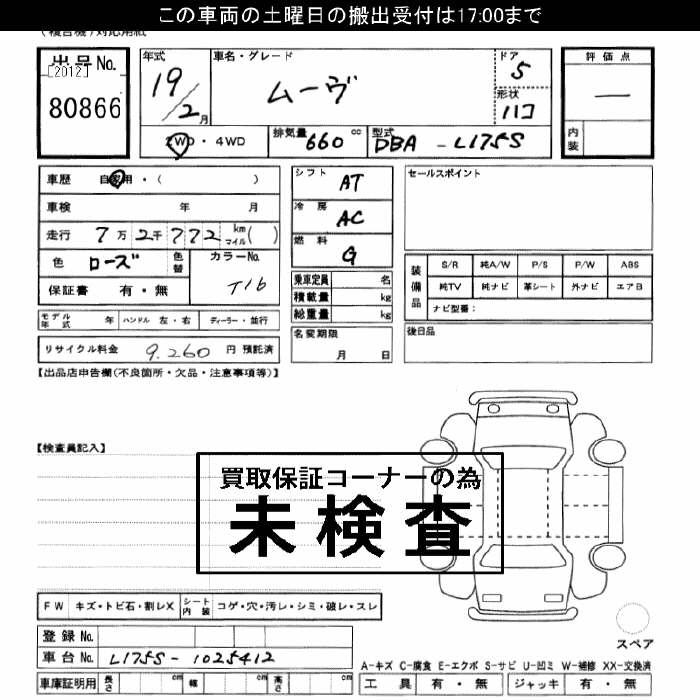 この車両の土曜日の搬出受付は17:00まで
(複合機)対応用紙
出品No. [2012] 80866
年式 19/2月
車名・グレード ムーヴ
ドア 5
形状 ハコ
評価点 —
内装
2WD・4WD
排気量 660 cc
型式 DBA-L175S
車歴 自家用・( )
車検 年 月
走行 7万2千772 km マイル( )
色 ローズ 色替
カラーNo. T16
保証書 有・無
シフト AT
冷房 AC
燃料 G
乗車定員 名
積載量 kg
総重量 kg
名変期限 月 日
セールスポイント
装備品 S/R 純A/W P/S P/W ABS
純TV 純ナビ 革シート 外ナビ エアB
ナビ型番:
後日品
モデル年式 年 ハンドル 左・右 ディーラー・並行
リサイクル料金 9.260 円 預託済
【出品店申告欄(不良箇所・欠品・注意事項等)】
【検査員記入】
買取保証コーナーの為
未検査
FW キズ・トビ石・割レX シート内装 コゲ・穴・汚レ・シミ・破レ・スレ
登録No.
車台No. L175S-1025412
車庫証明用 長さ cm 幅 cm 高さ cm
スペア
A-キズ C-腐食 E-エクボ S-サビ U-凹ミ W-補修 XX-交換済
工具 有・無 ジャッキ 有・無